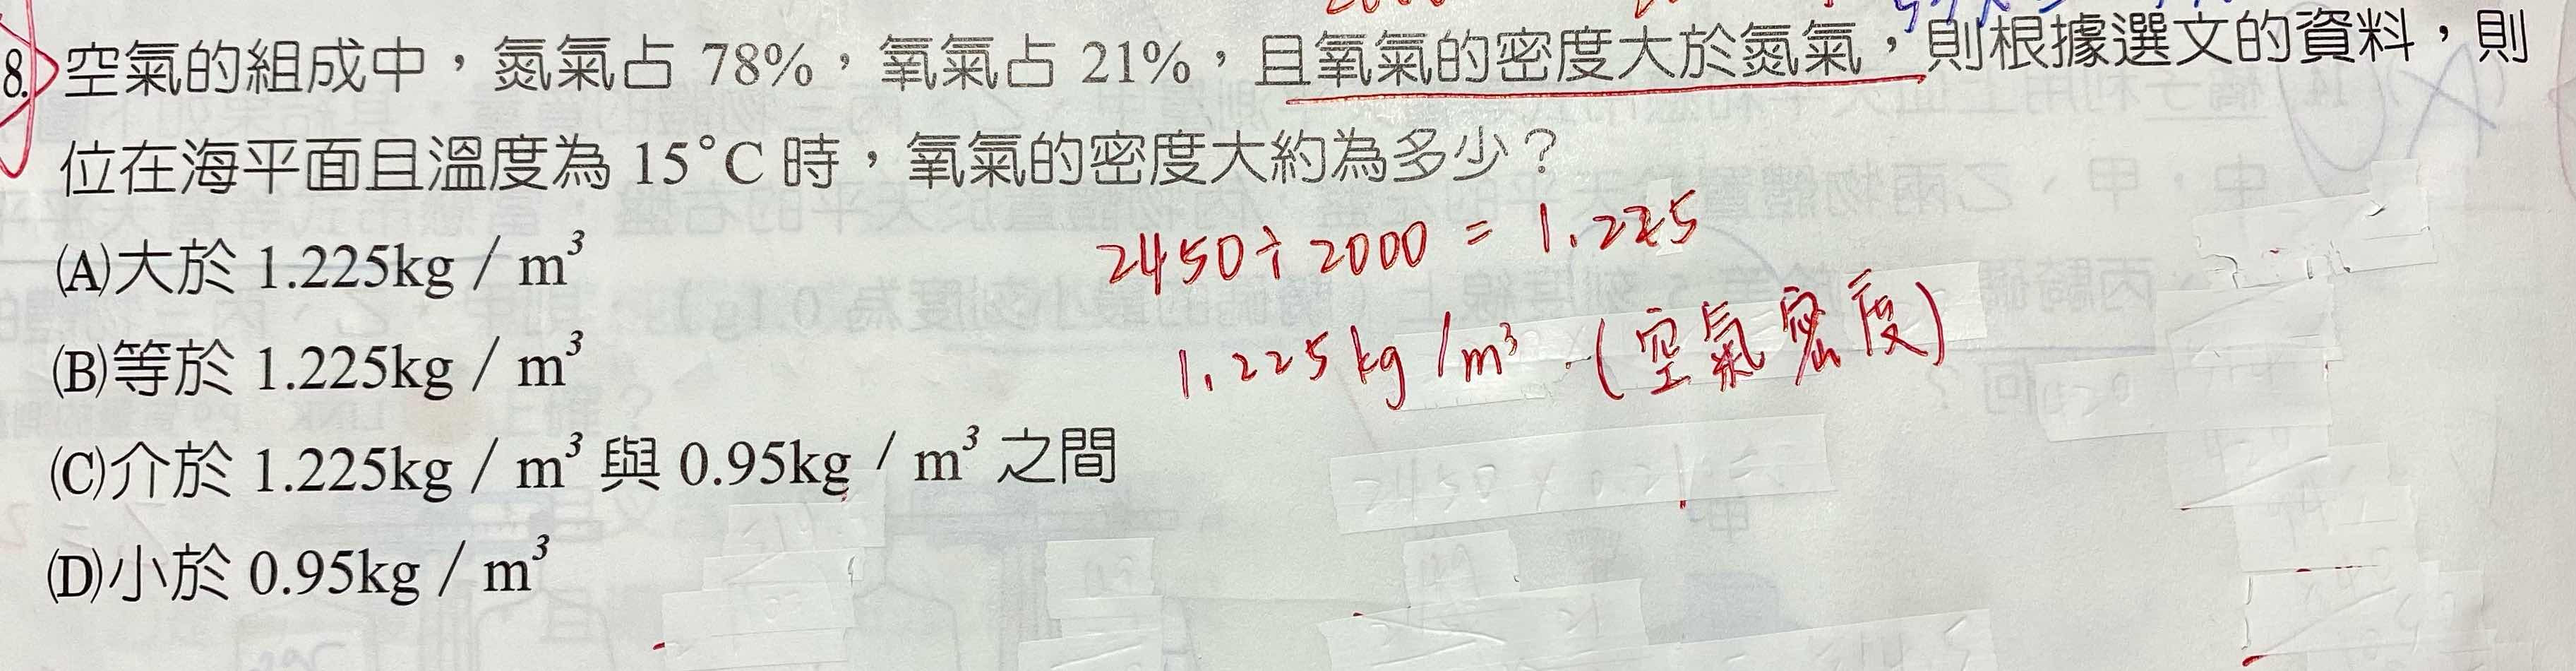 8. 空氣的組成中，氮氣占 78%，氧氣占 21%，且氧氣的密度大於氮氣，則根據選文的資料，則
位在海平面且溫度為 15°C 時，氧氣的密度大約為多少？
(A)大於 1.225kg / m³
2450÷2000 = 1.225
(B)等於 1.225kg / m³
1.225kg/m³ (空氣密度)
(C)介於 1.225kg / m³ 與 0.95kg / m³ 之間
(D)小於 0.95kg / m³